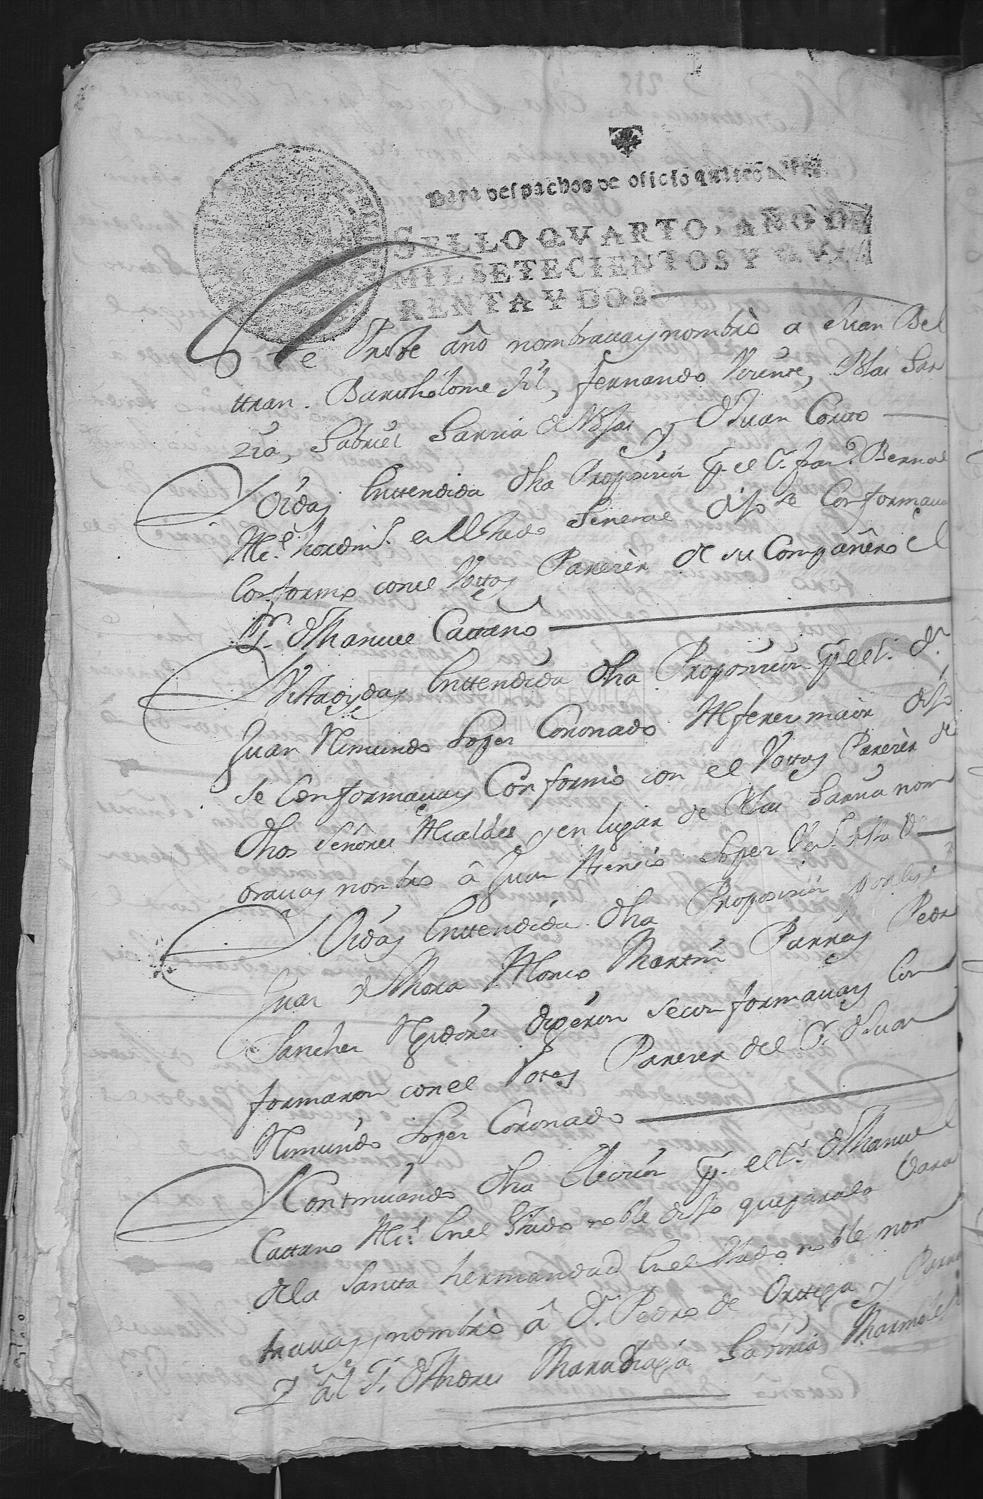 Para despachos de oficio quatro mrs.
SELLO QVARTO, AÑO DE
MIL SETECIENTOS Y QVA
RENTA Y DOS
este año nombravay nombrò a Juan Bel
ttran. Bartholome Gil, fernando Vizente, Blas Gar
zia, Gabriel Garzia de Blas y Juan Corito
Oiday Enttendida dha Proposizion p.r el S.r
Alc.e hordin.o en el estado General dijo se Conformava
Conformo con el Votoy Parezer de su Compañero el
S.r D.n Manuel Cattano
Vistay oyday Enttendida dha Proposizion p.r el S.r D.n
Juan Nimundo Lopez Coronado Alferez maior dijo
se Conformavay Conformò con el Votoy Parezer de
dhos Señores Alcaldes y en lugar de Blas Garzia nom
bravay nombrò â Juan Lopez
Oiday Enttendida dha Proposizion por los S.s
Juan de Mora Alonso Martin Parray Pedro
Sanchez Rexidores dixeron se conformavay Con
formaron con el Votoy Parezer del S.r D.n Juan
Nimundo Lopez Coronado
Continuando dha Elezion p.r el S.r D.n Manuel
Cattano Alc.e En el Estado noble dijo que para la Vara
de la Santta hermandad En el estado noble nom
bravay nombrò â D.n Pedro de Orttega y Parra
y al S.r D.n Andres Garzia Marmolejo